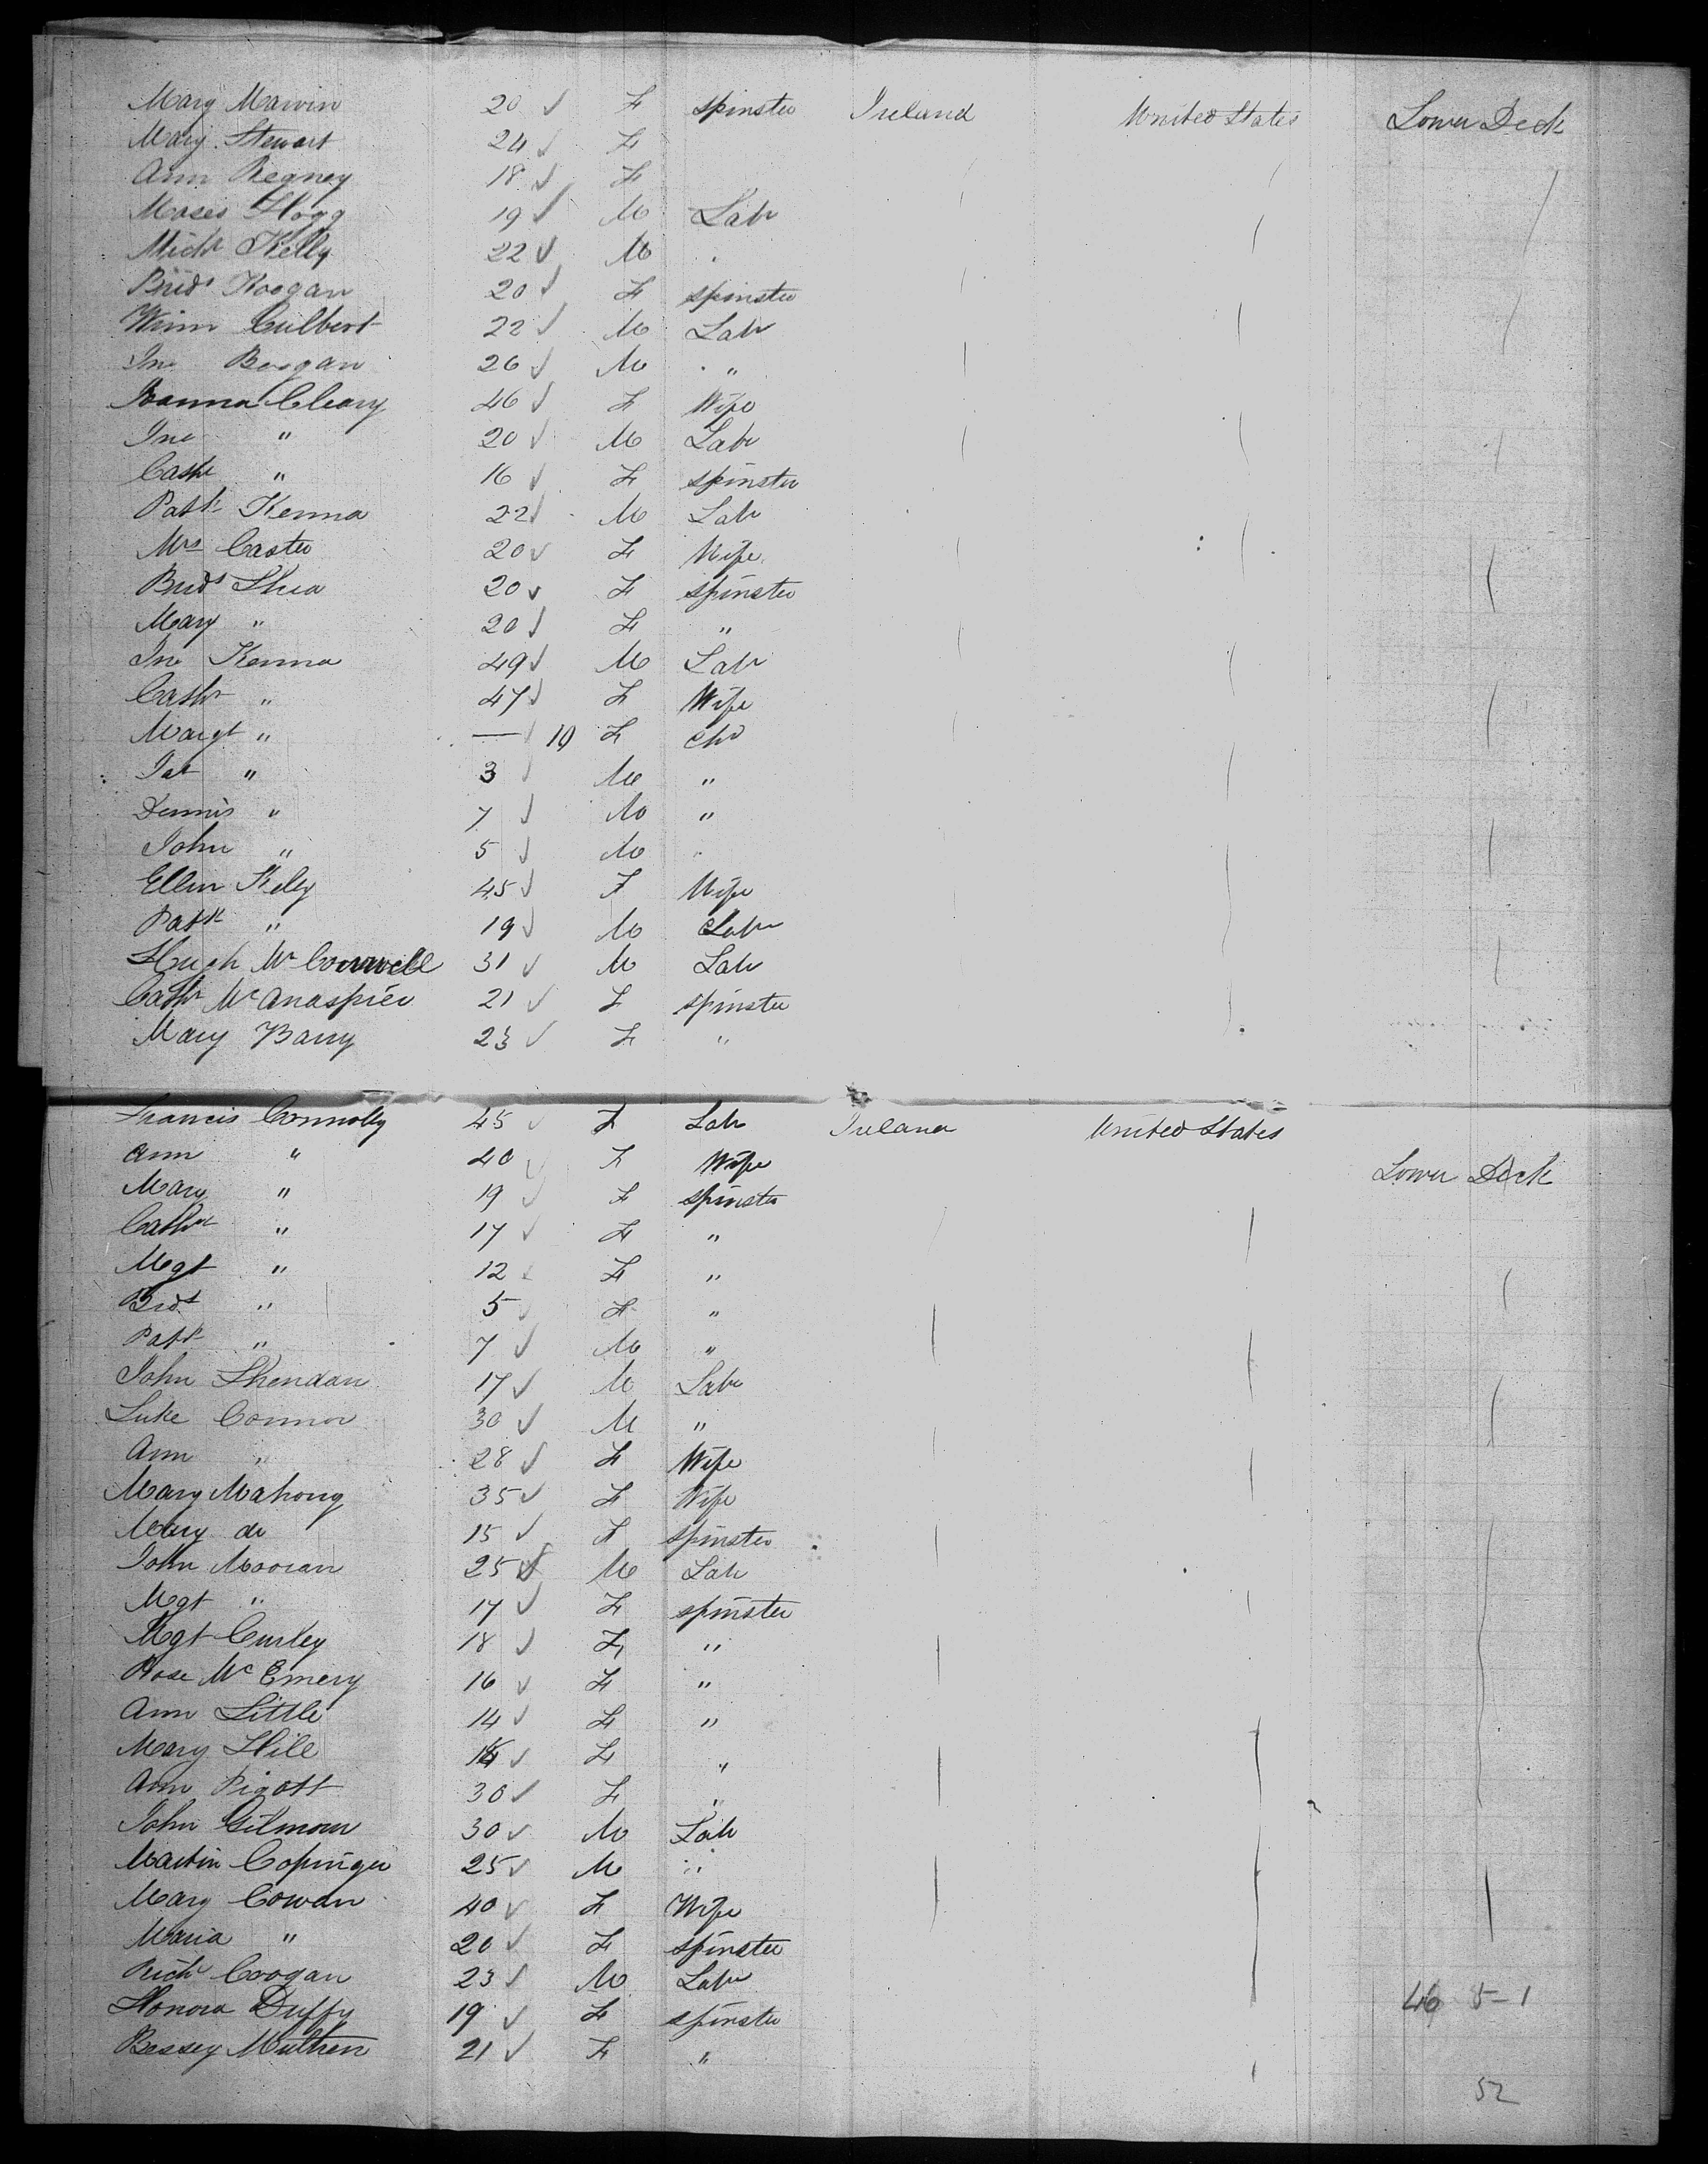 Mary Marvin 20 F spinster Ireland United States Lower Deck
Mary Stewart 24 F
Ann Regney 18 F
Moses Hogg 19 M Labr
Michl Kelly 22 M
Bridt Hoogan 20 F spinster
Winn Culbert 22 M Labr
Jno Boogan 26 M "
Joanna Cleary 46 F Wife
Jno " 20 M Labr
Cathe " 16 F spinster
Patk Kenna 22 M Labr
Mrs Caster 20 F Wife
Bridt Shea 20 F spinster
Mary " 20 F "
Jno Kenna 49 M Labr
Cathr " 47 F Wife
Margt " — 10 F Chd
Pat " 3 M "
Dennis " 7 M "
John " 5 M
Ellen Kely 45 F Wife
Patk " 19 M Labr
Hugh McConnell 31 M Labr
Cathr McAnaspier 21 F spinster
Mary Barry 23 F "
Francis Connolly 45 F Labr Ireland United States
Ann " 40 F Wife Lower Deck
Mary " 19 F spinster
Cathr " 17 F "
Mgt " 12 F "
Bridt " 5 F "
Patk " 7 M "
John Sheridan 17 M Labr
Luke Connor 30 M "
Ann " 28 F Wife
Mary Mahony 35 F Wife
Mary do 15 F spinster
John Mooran 25 M Labr
Mgt " 17 F spinster
Mgt Curley 18 F "
Rose McEmery 16 F "
Ann Little 14 F "
Mary Hill F "
Ann Pigott 30 F "
John Gilmour 30 M Labr
Martin Copinger 25 M "
Mary Cowan 40 F Wife
Maria " 20 F spinster
Richd Coogan 23 M Labr
Honora Duffy 19 F spinster 46 5-1
Bessey Mulhern 21 F "
52